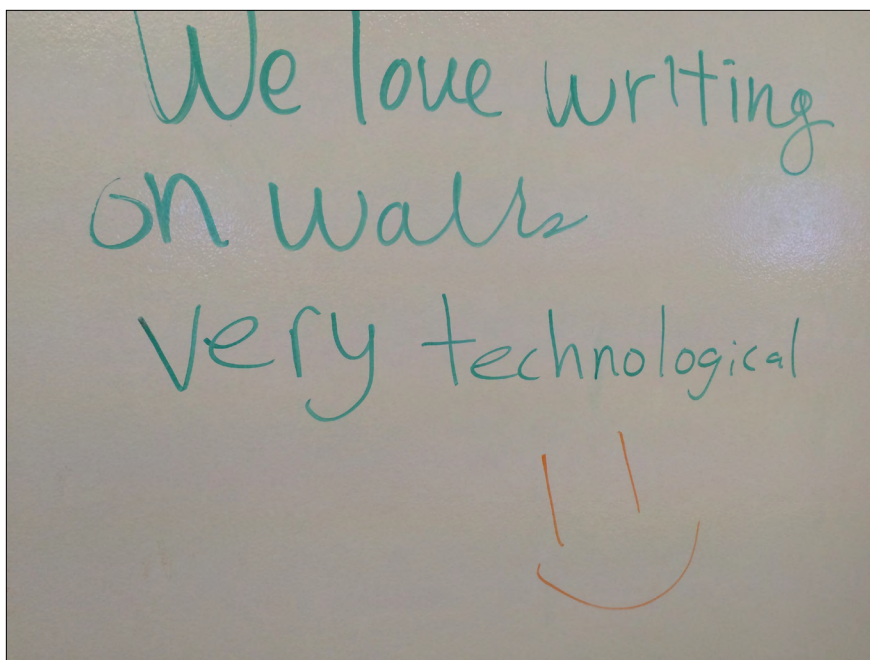 We love writing
on walls
very technological